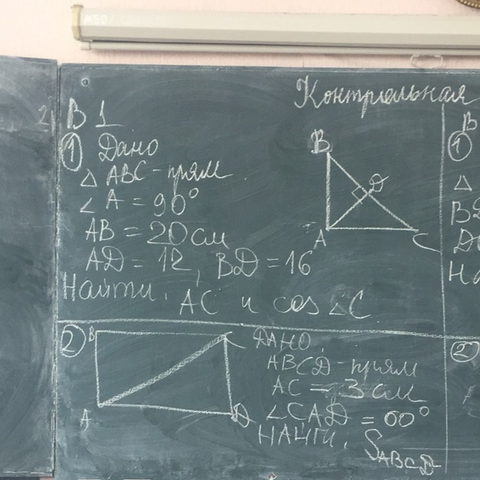 Контрольная
В 1
① Дано
△ ABC - прям.
∠A = 90°
AB = 20 см
AD = 12, BD = 16
Найти: AC и cos∠C.
B
D
A
C
②
B
A
D
C
ДАНО:
ABCD - прям
AC = 3 см
НАЙТИ: S ABCD
В
①
△
②